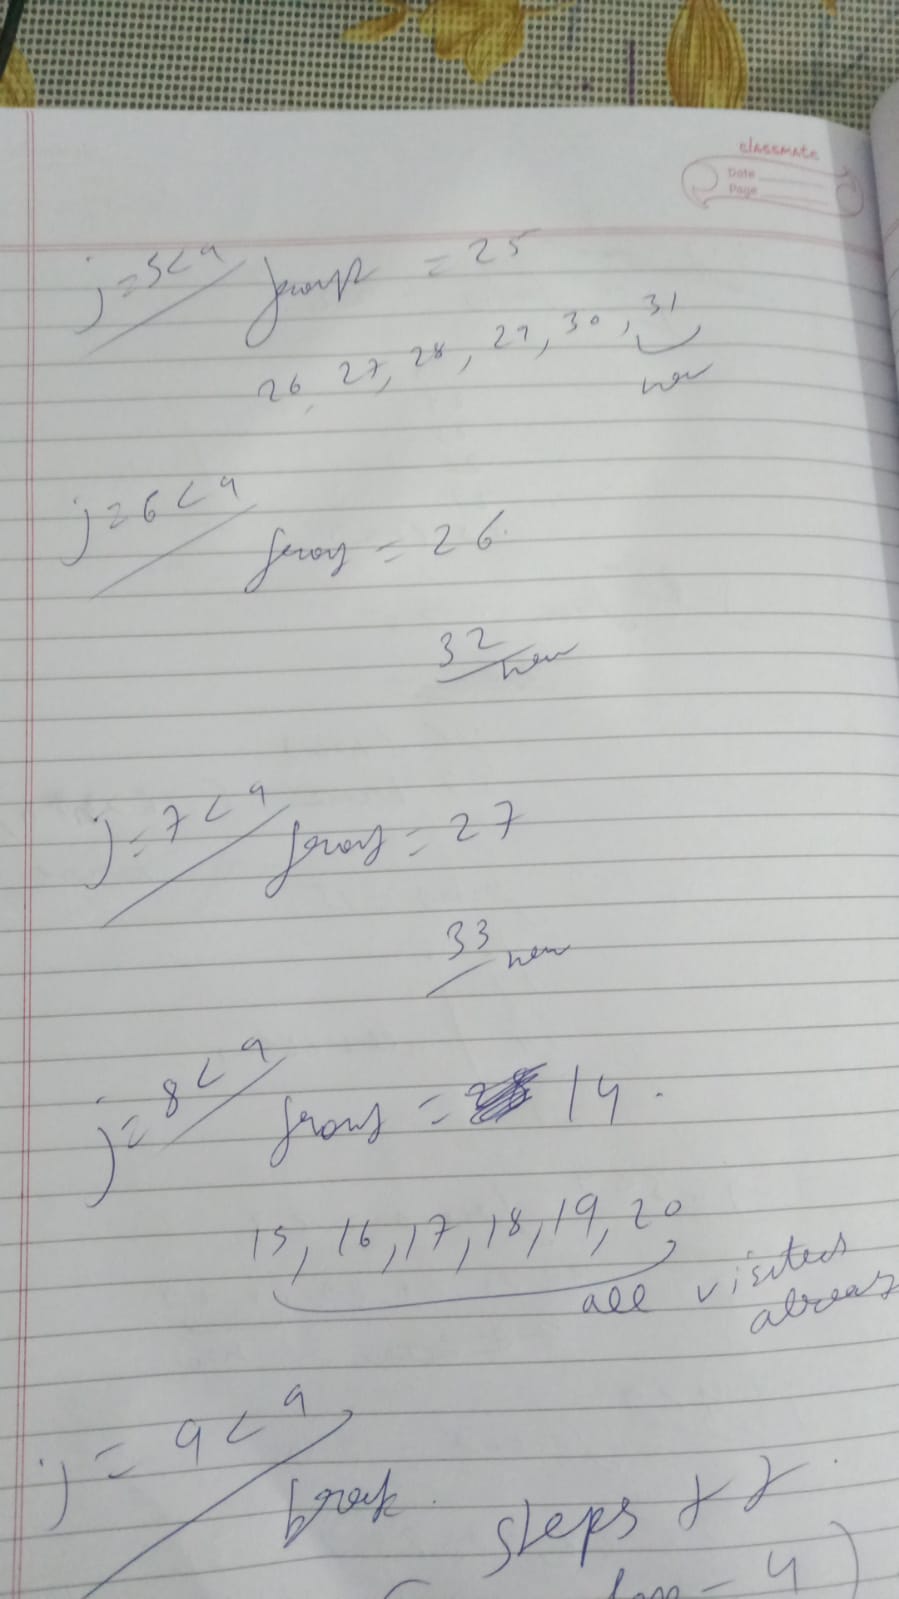 classmate
Date
Page
j=5<9 front = 25
26, 27, 28, 29, 30, 31
new
j=6<9
front = 26.
32 new
j=7<9 front = 27
33 new
j=8<9 front = 14.
15, 16, 17, 18, 19, 20
all visited
j=9<9
break.
steps ++
= 4)